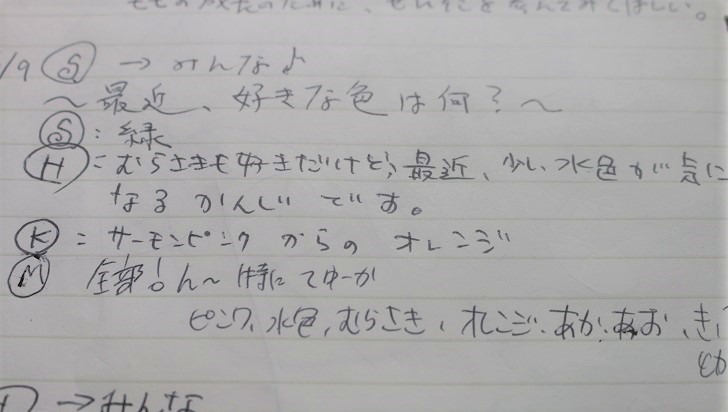 ももの成長のために、ぜひそこを なんてみてほしい。
/9 Ⓢ → みんな♪
〜最近、好きな色は何？〜
Ⓢ：緑
Ⓗ：むらさきも好きだけど、最近、少し水色が気に
なるかんじです。
Ⓚ：サーモンピンク からの オレンジ
Ⓜ 全部！ん〜特にてゆーか
ピンク、水色、むらさき、オレンジ、あか、あお、き
とか
→みんな